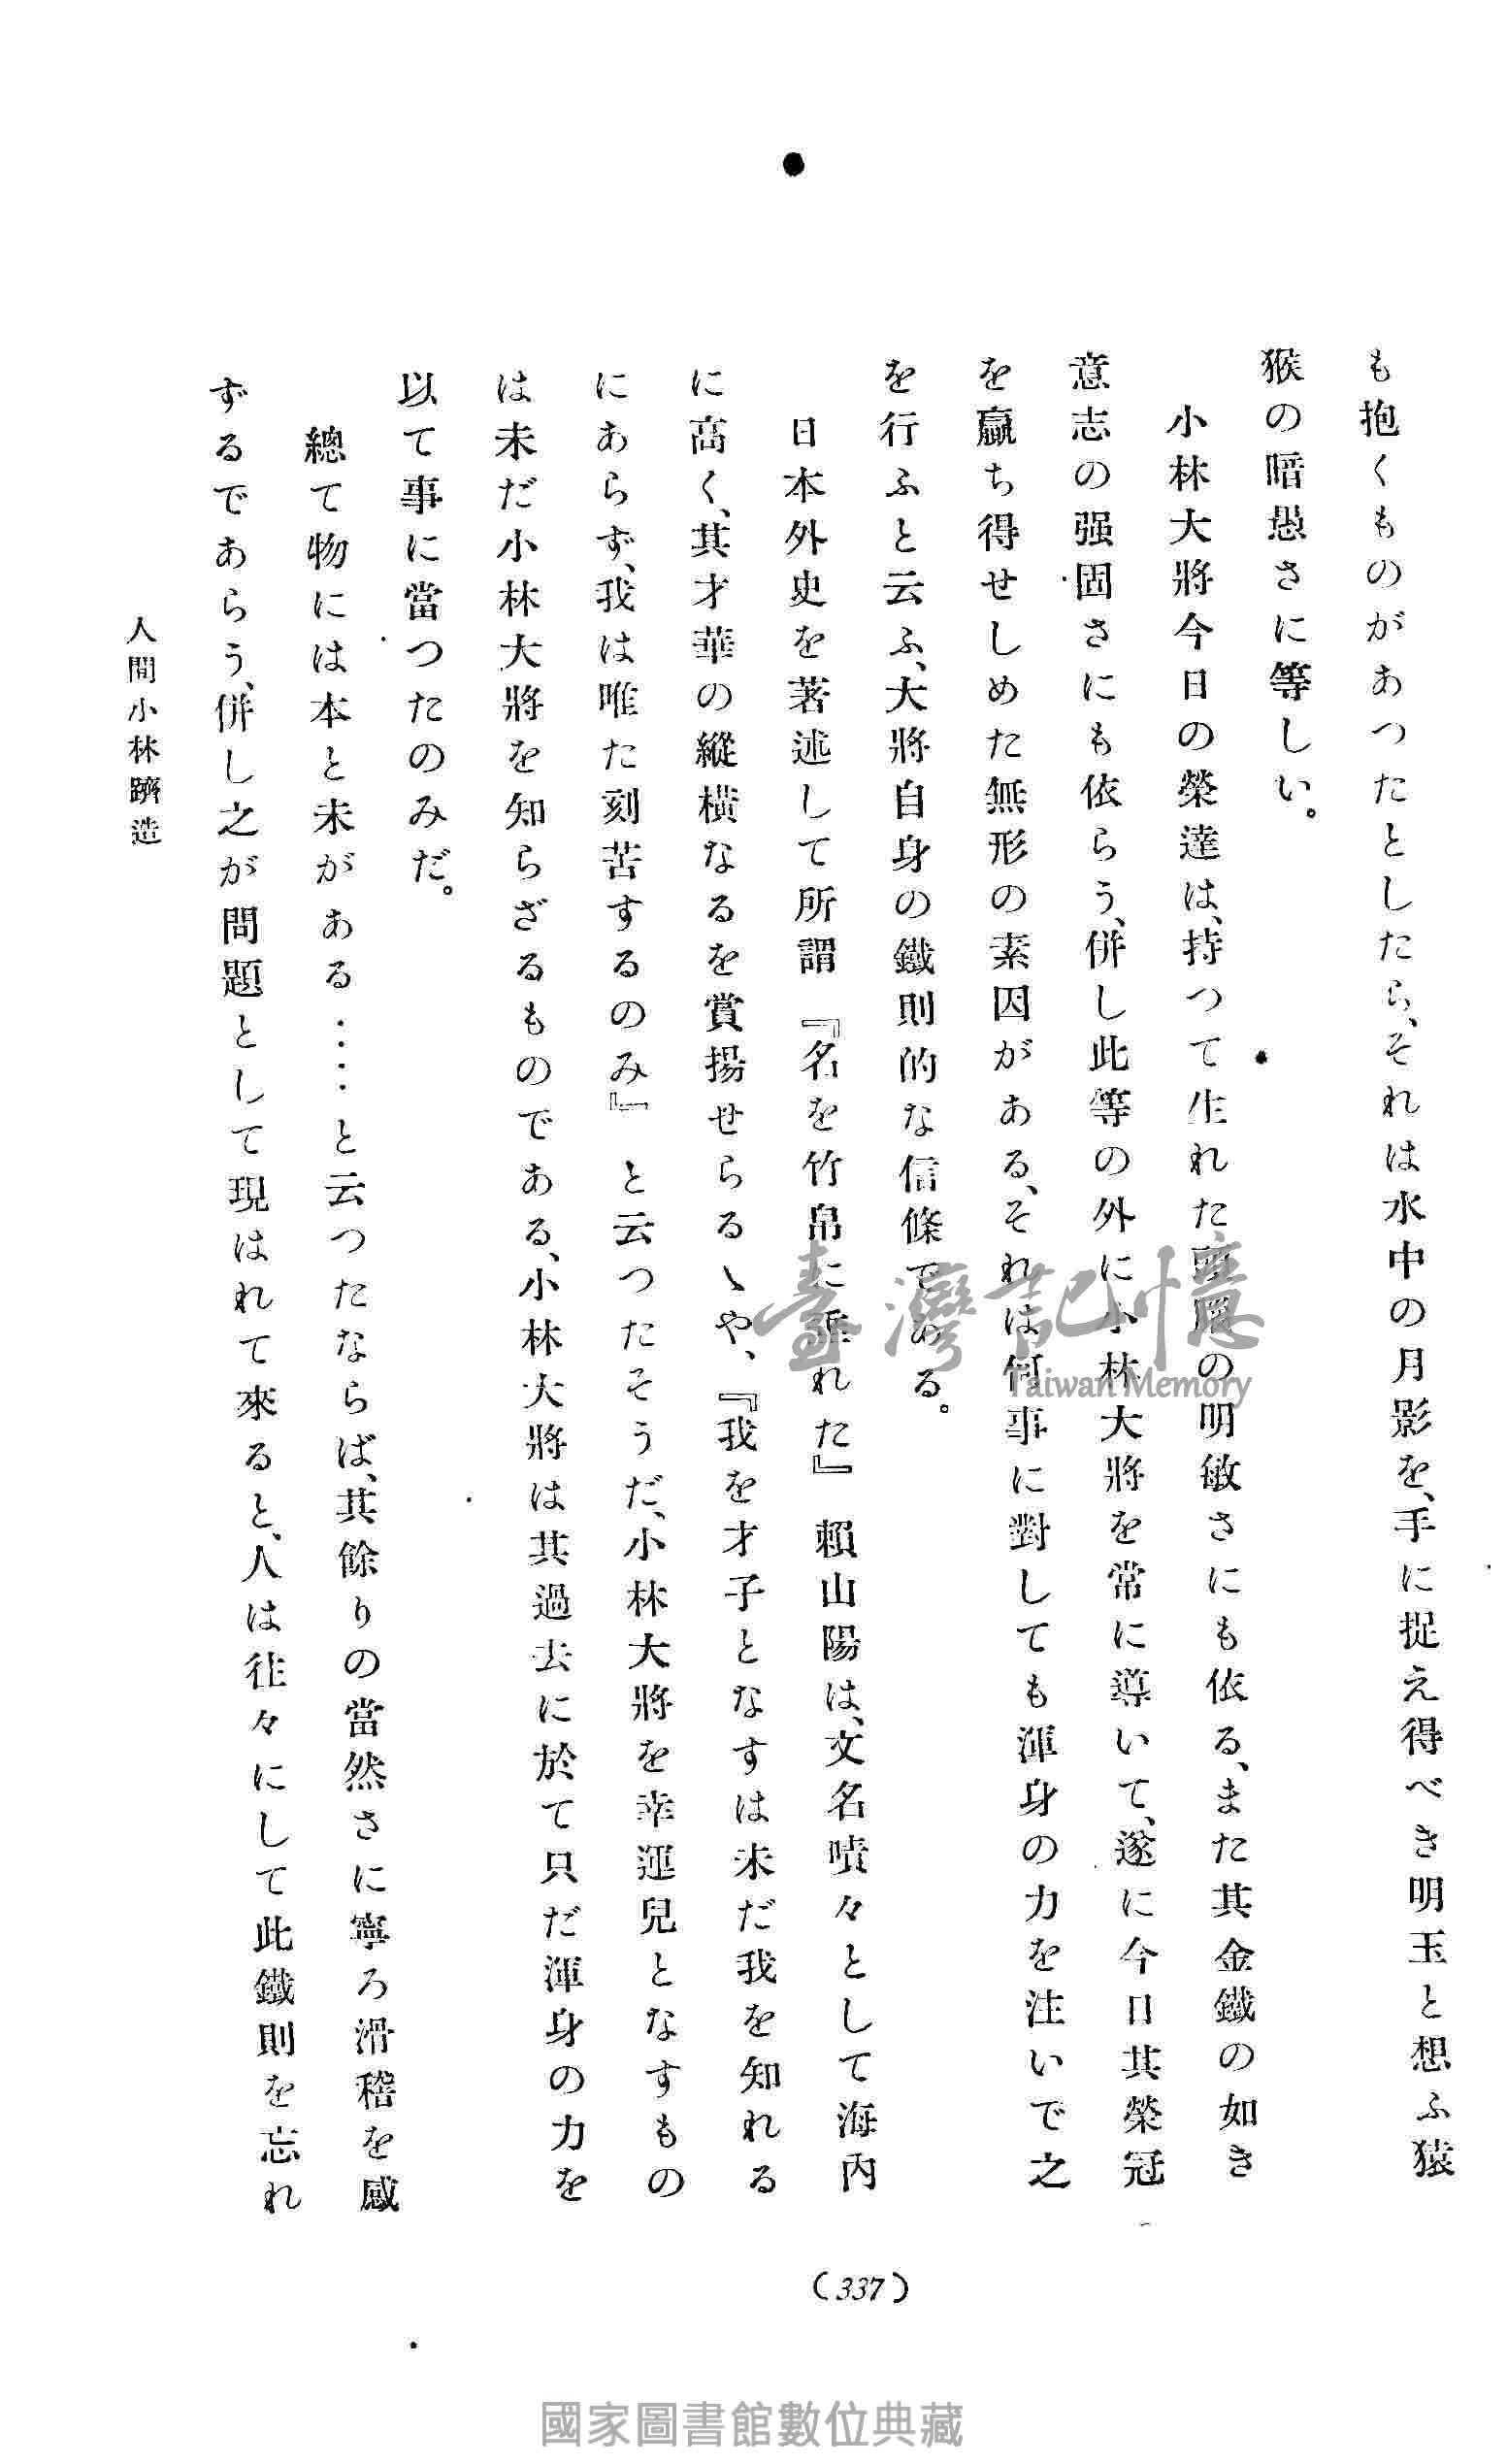 も抱くものがあつたとしたら、それは水中の月影を、手に捉え得べき明玉と想ふ猿
猴の暗愚さに等しい。
小林大將今日の榮達は、持つて生れた頭腦の明敏さにも依る、また其金鐵の如き
意志の强固さにも依らう、併し此等の外に小林大將を常に導いて、遂に今日其榮冠
を贏ち得せしめた無形の素因がある、それは何事に對しても渾身の力を注いで之
を行ふと云ふ、大將自身の鐵則的な信條である。
日本外史を著述して所謂『名を竹帛に垂れた』賴山陽は、文名嘖々として海內
に高く、其才華の縱橫なるを賞揚せらるゝや、『我を才子となすは未だ我を知れる
にあらず、我は唯た刻苦するのみ』と云つたそうだ、小林大將を幸運兒となすもの
は未だ小林大將を知らざるものである、小林大將は其過去に於て只だ渾身の力を
以て事に當つたのみだ。
總て物には本と末がある‥‥と云つたならば、其餘りの當然さに寧ろ滑稽を感
ずるであらう、併し之が問題として現はれて來ると、人は往々にして此鐵則を忘れ
人間小林躋造
(337)
臺灣記憶
Taiwan Memory
國家圖書館數位典藏